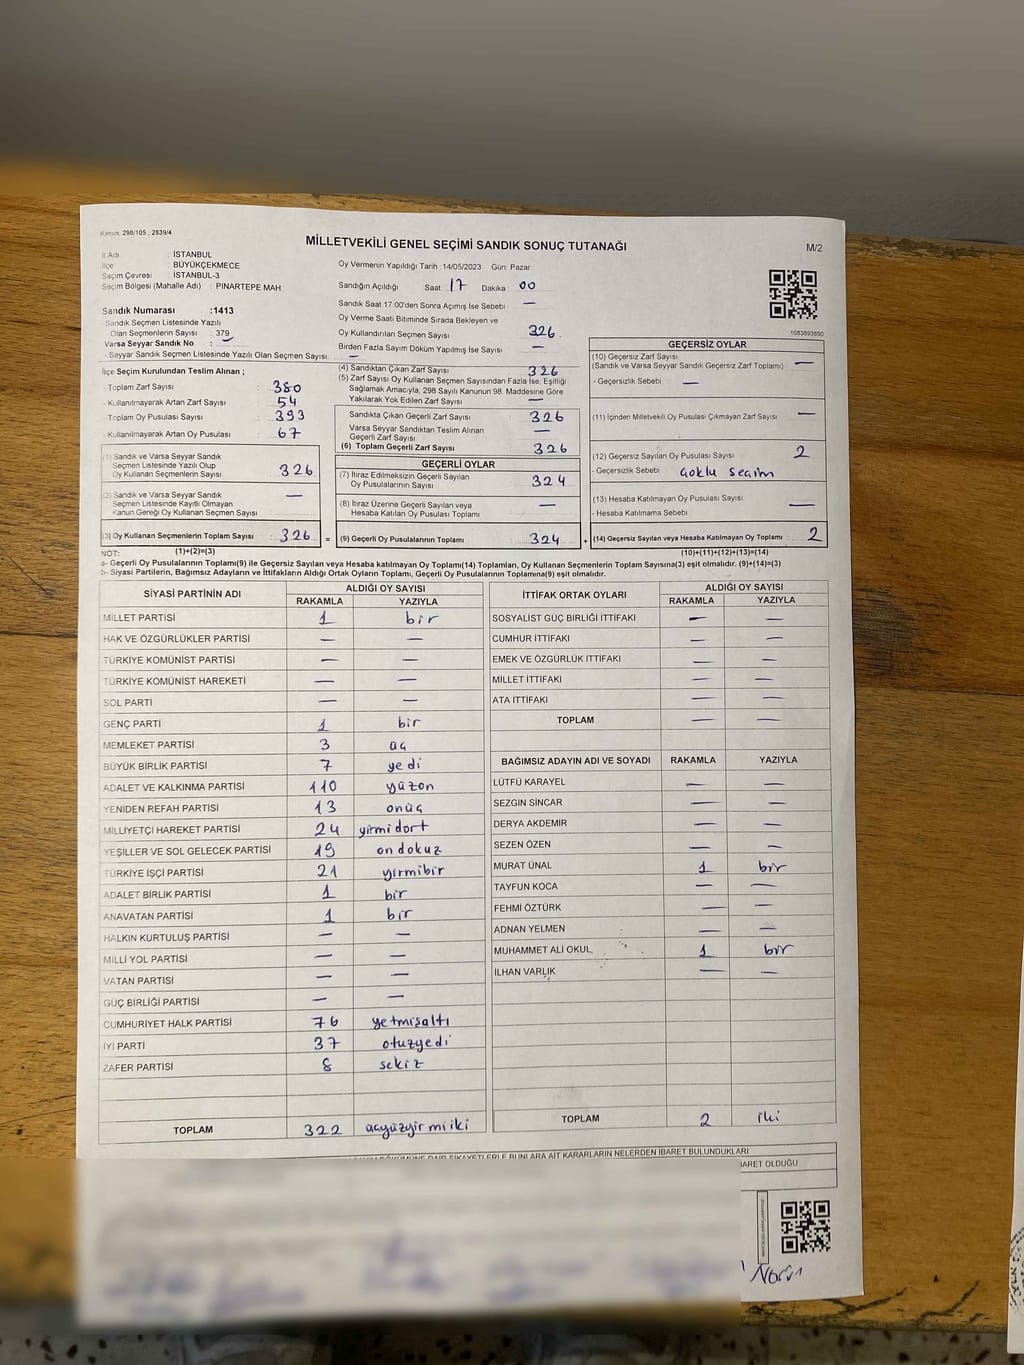 Kanun, 298/105 , 2839/4
MİLLETVEKİLİ GENEL SEÇİMİ SANDIK SONUÇ TUTANAĞI
M/2
İl Adı : İSTANBUL
İlçe : BÜYÜKÇEKMECE
Seçim Çevresi : İSTANBUL-3
Seçim Bölgesi (Mahalle Adı) : PINARTEPE MAH
Sandık Numarası :1413
- Sandık Seçmen Listesinde Yazılı
Olan Seçmenlerin Sayısı : 379
Varsa Seyyar Sandık No : —
- Seyyar Sandık Seçmen Listesinde Yazılı Olan Seçmen Sayısı: —
İlçe Seçim Kurulundan Teslim Alınan ;
- Toplam Zarf Sayısı : 380
- Kullanılmayarak Artan Zarf Sayısı : 54
- Toplam Oy Pusulası Sayısı : 393
- Kullanılmayarak Artan Oy Pusulası : 67
(1) Sandık ve Varsa Seyyar Sandık
Seçmen Listesinde Yazılı Olup
Oy Kullanan Seçmenlerin Sayısı : 326
(2) Sandık ve Varsa Seyyar Sandık
Seçmen Listesinde Kayıtlı Olmayan
Kanun Gereği Oy Kullanan Seçmen Sayısı : —
(3) Oy Kullanan Seçmenlerin Toplam Sayısı : 326
(1)+(2)=(3)
Oy Vermenin Yapıldığı Tarih :14/05/2023 Gün: Pazar
Sandığın Açıldığı Saat 17 Dakika 00
Sandık Saat 17.00'den Sonra Açımış İse Sebebi : —
Oy Verme Saati Bitiminde Sırada Bekleyen ve
Oy Kullandırılan Seçmen Sayısı : 326
Birden Fazla Sayım Döküm Yapılmış İse Sayısı : —
(4) Sandıktan Çıkan Zarf Sayısı : 326
(5) Zarf Sayısı Oy Kullanan Seçmen Sayısından Fazla İse, Eşitliği
Sağlamak Amacıyla, 298 Sayılı Kanunun 98. Maddesine Göre
Yakılarak Yok Edilen Zarf Sayısı : —
Sandıkta Çıkan Geçerli Zarf Sayısı : 326
Varsa Seyyar Sandıktan Teslim Alınan
Geçerli Zarf Sayısı : —
(6) Toplam Geçerli Zarf Sayısı : 326
GEÇERLİ OYLAR
(7) İtiraz Edilmeksizin Geçerli Sayılan
Oy Pusulalarının Sayısı : 324
(8) İtiraz Üzerine Geçerli Sayılan veya
Hesaba Katılan Oy Pusulası Toplamı : —
= (9) Geçerli Oy Pusulalarının Toplamı : 324 +
1083693890
GEÇERSİZ OYLAR
(10) Geçersiz Zarf Sayısı
(Sandık ve Varsa Seyyar Sandık Geçersiz Zarf Toplamı) : —
- Geçersizlik Sebebi : —
(11) İçinden Milletvekili Oy Pusulası Çıkmayan Zarf Sayısı : —
(12) Geçersiz Sayılan Oy Pusulası Sayısı : 2
- Geçersizlik Sebebi : çoklu seçim
(13) Hesaba Katılmayan Oy Pusulası Sayısı : —
- Hesaba Katılmama Sebebi :
(14) Geçersiz Sayılan veya Hesaba Katılmayan Oy Toplamı : 2
(10)+(11)+(12)+(13)=(14)
NOT:
a- Geçerli Oy Pusulalarının Toplamı(9) ile Geçersiz Sayılan veya Hesaba Katılmayan Oy Toplamı(14) Toplamları, Oy Kullanan Seçmenlerin Toplam Sayısına(3) eşit olmalıdır. (9)+(14)=(3)
b- Siyasi Partilerin, Bağımsız Adayların ve İttifakların Aldığı Ortak Oyların Toplamı, Geçerli Oy Pusulalarının Toplamına(9) eşit olmalıdır.
SİYASİ PARTİNİN ADI ALDIĞI OY SAYISI
RAKAMLA YAZIYLA
MİLLET PARTİSİ 1 bir
HAK VE ÖZGÜRLÜKLER PARTİSİ — —
TÜRKİYE KOMÜNİST PARTİSİ — —
TÜRKİYE KOMÜNİST HAREKETİ — —
SOL PARTİ — —
GENÇ PARTİ 1 bir
MEMLEKET PARTİSİ 3 üç
BÜYÜK BİRLİK PARTİSİ 7 yedi
ADALET VE KALKINMA PARTİSİ 110 yüzon
YENİDEN REFAH PARTİSİ 13 onüç
MİLLİYETÇİ HAREKET PARTİSİ 24 yirmidört
YEŞİLLER VE SOL GELECEK PARTİSİ 19 ondokuz
TÜRKİYE İŞÇİ PARTİSİ 21 yirmibir
ADALET BİRLİK PARTİSİ 1 bir
ANAVATAN PARTİSİ 1 bir
HALKIN KURTULUŞ PARTİSİ — —
MİLLİ YOL PARTİSİ — —
VATAN PARTİSİ — —
GÜÇ BİRLİĞİ PARTİSİ — —
CUMHURİYET HALK PARTİSİ 76 yetmişaltı
İYİ PARTİ 37 otuzyedi
ZAFER PARTİSİ 8 sekiz
TOPLAM 322 üçyüzyirmiiki
İTTİFAK ORTAK OYLARI ALDIĞI OY SAYISI
RAKAMLA YAZIYLA
SOSYALİST GÜÇ BİRLİĞİ İTTİFAKI — —
CUMHUR İTTİFAKI — —
EMEK VE ÖZGÜRLÜK İTTİFAKI — —
MİLLET İTTİFAKI — —
ATA İTTİFAKI — —
TOPLAM — —
BAĞIMSIZ ADAYIN ADI VE SOYADI RAKAMLA YAZIYLA
LÜTFÜ KARAYEL — —
SEZGİN SİNCAR — —
DERYA AKDEMİR — —
SEZEN ÖZEN — —
MURAT ÜNAL 1 bir
TAYFUN KOCA — —
FEHMİ ÖZTÜRK — —
ADNAN YELMEN — —
MUHAMMET ALİ OKUL 1 bir
İLHAN VARLIK — —
TOPLAM 2 iki
DAİR ŞİKAYETLERLE BUNLARA AİT KARARLARIN NELERDEN İBARET BULUNDUKLARI
İBARET OLDUĞU